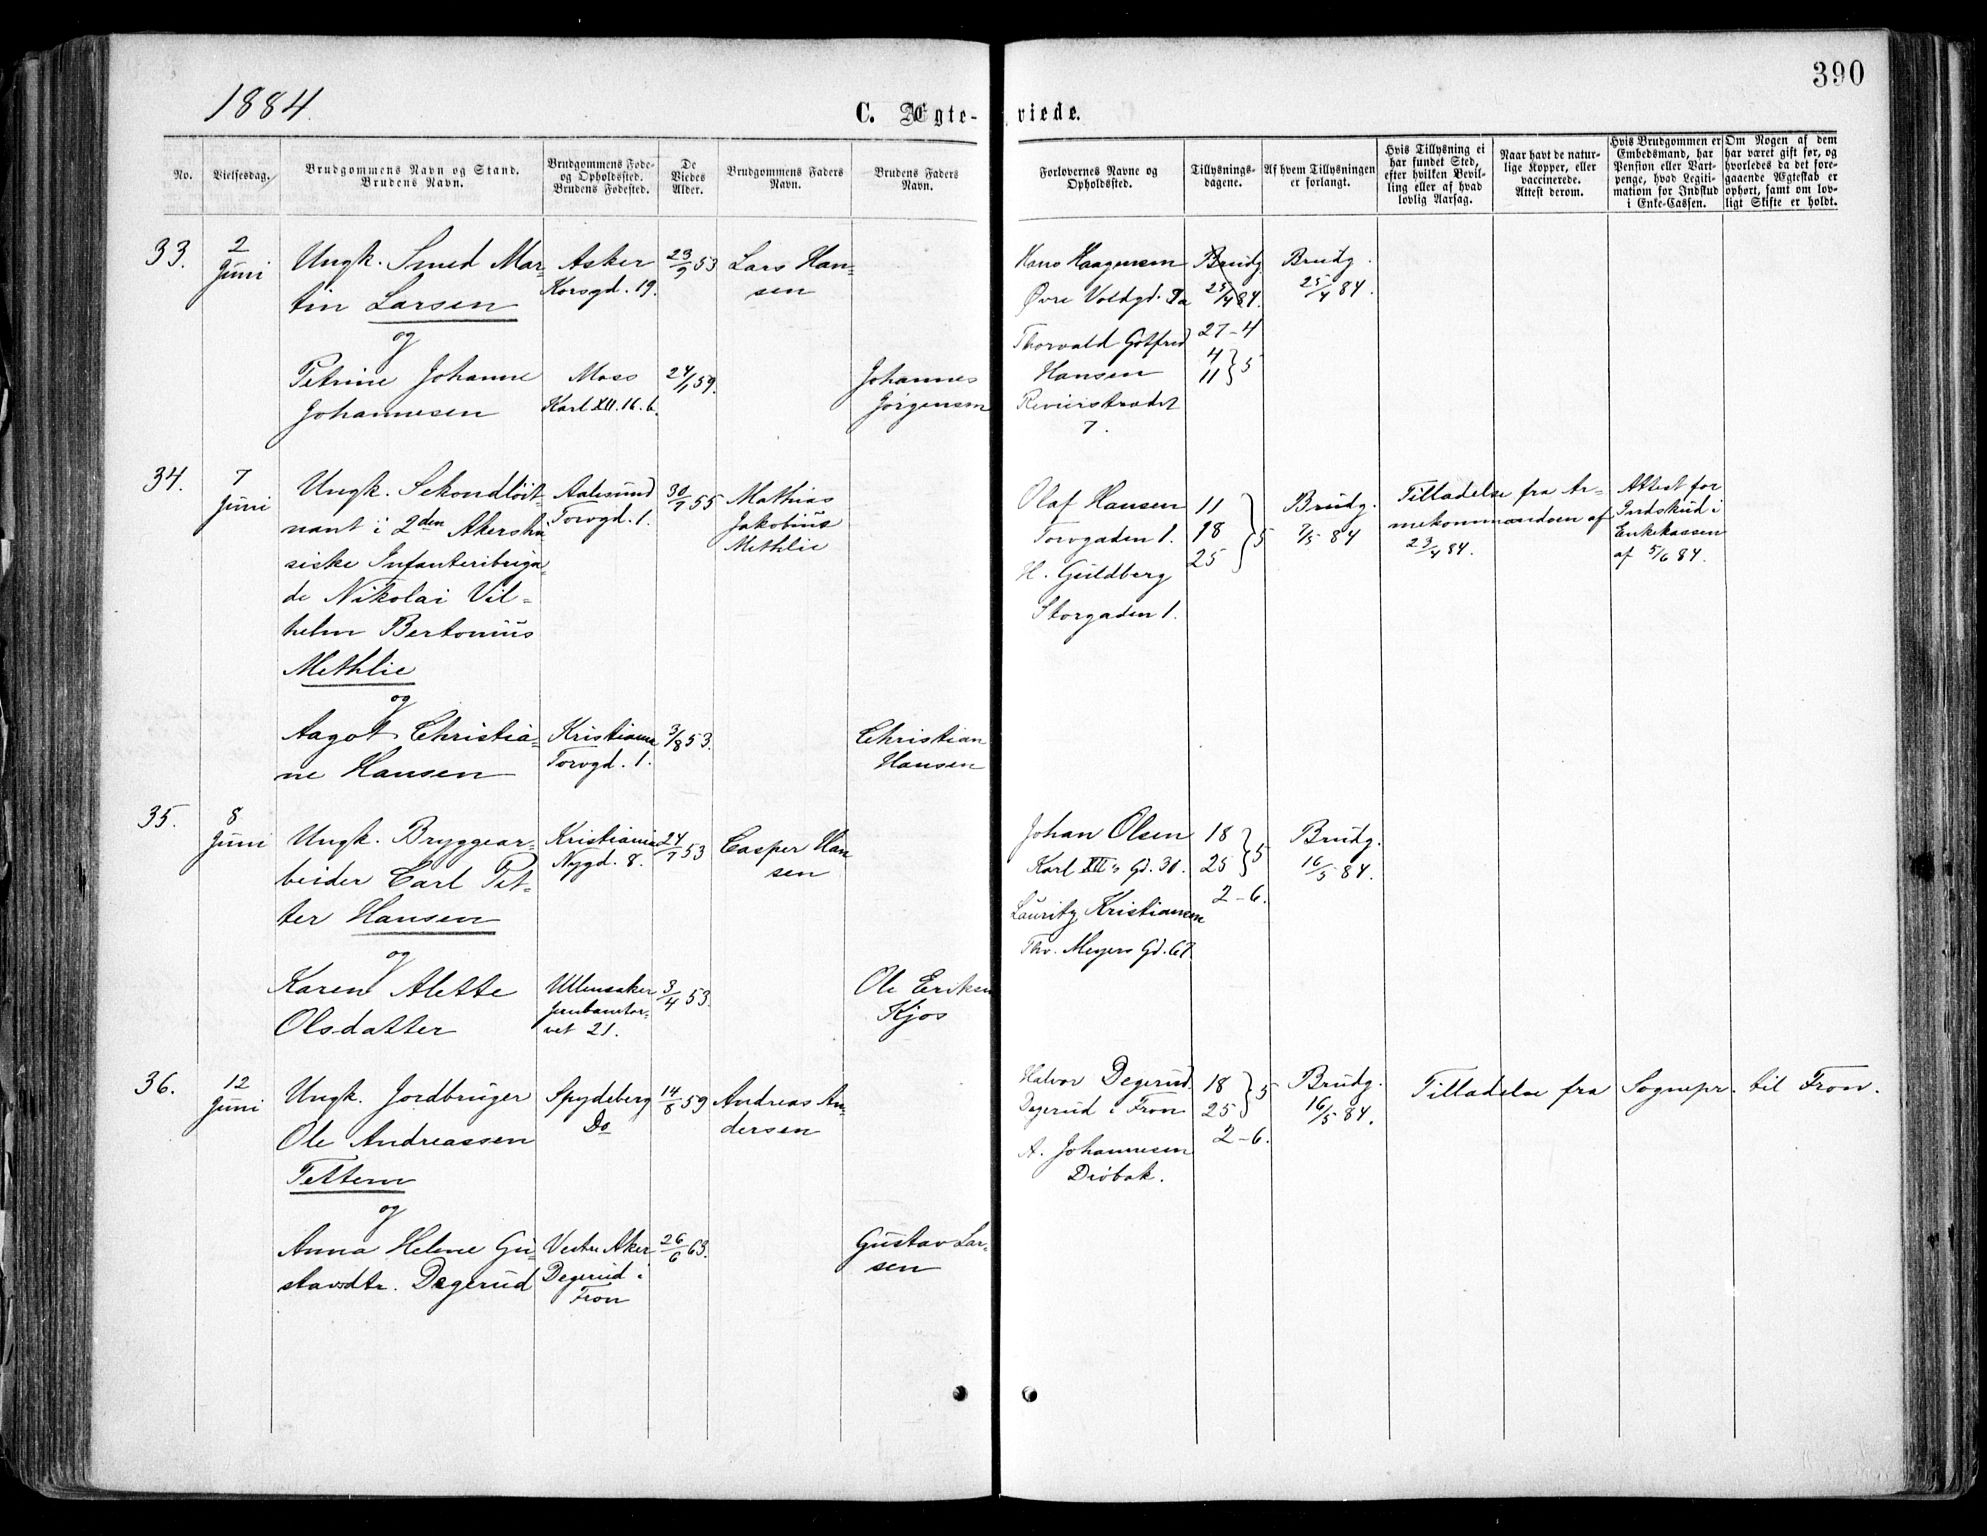 390
1884.
C. Ægte-viede.
No.
Vielsesdag.
Brudgommens Navn og Stand.
Brudens Navn.
Brudgommens Føde-
og Opholdssted.
Brudens Fødested.
De
Viedes
Alder.
Brudgommens Faders
Navn.
Brudens Faders
Navn.
Forlovernes Navne og
Opholdssted.
Tillysnings-
dagene.
Af hvem Tillysningen
er forlangt.
Hvis Tillysning ei
har fundet Sted,
efter hvilken Bevil-
ling eller af hvad
lovlig Aarsag.
Naar havt de natur-
lige Kopper, eller
vaccinerede.
Attest derom.
Hvis Brudgommen er
Embedsmand, har
Pension eller Vart-
penge, hvad Legiti-
mation for Indskud
i Enke-Cassen.
Om Nogen af dem
har været gift før, og
hvorledes da det fore-
gaaende Ægteskab er
ophørt, samt om lov-
ligt Skifte er holdt.
33.
2
Juni
Ungk. Smed Mar-
tin Larsen
og
Petrine Johanne
Johannesen
Asker
Korsgd. 19.
Moss
Karl XII. 16. b.
23/9 53
24/1 59.
Lars Han-
sen
Johannes
Jørgensen
Hans Haagensen
Øvre Voldgd. 2a
Thorvald Gotfred
Hansen
Revierstrædet
7.
Brudg.
25/4 84.
27-4
4
11 } 5
Brudg.
25/4 84.
34.
7
Juni
Ungk. Sekondløit-
nant i 2den Akershu
siske Infanteribriga-
de Nikolai Vil-
helm Bertonius
Methlie
og
Aagot Christia-
ne Hansen
Aalesund
Torvgd. 1.
Kristiania
Torvgd. 1.
30/7 55
3/8 53.
Mathias
Jakobius
Methlie
Christian
Hansen
Olaf Hansen
Torvgaden 1.
H. Guldberg
Storgaden 1.
11
18
25 } 5
Brudg.
7/5 84
Tilladelse fra Ar-
mekommandoen af
23/4 84.
Attest for
Indskud i
Enkekassen
af 5/6 84.
35.
8
Juni
Ungk. Bryggear-
beider Carl Pet-
ter Hansen
og
Karen Alette
Olsdatter
Kristiania
Nygd. 8.
Ullensaker
Jernbanetor-
vet 21.
24/7 53
3/4 53.
Casper Han
sen
Ole Eriksen
Kjos
Johan Olsen
Karl XII's Gd. 30.
Lauritz Kristiansen
Thv. Meyers Gd. 67
18
25 } 5
2-6.
Brudg.
16/5 84.
36.
12
Juni
Ungk. Jordbruger
Ole Andreassen
Tettern
og
Anna Helene Gu-
stavsdtr. Degerud
Spydeberg
Do
Vestre Aker
Degerud i
Fron
14/8 59
26/6 63.
Andreas An
dersen
Gustav Lar-
sen
Halvor Degerud.
Degerud i Fron
A. Johannesen
Drøbak.
18
25 } 5
2-6.
Brudg.
16/5 84.
Tilladelse fra Sognepr. til Fron.